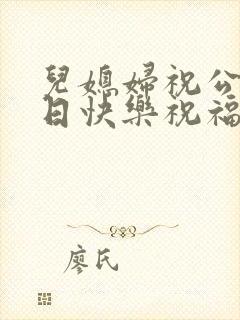 兒媳婦祝公
日快樂祝福
廖氏